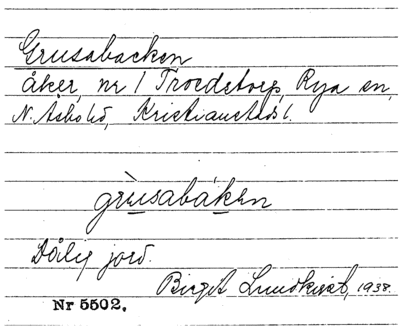 Grusabacken
åker, nr 1 Troedstorp, Rya sn,
N. Åsbo hd, Kristianstads l.
grùsabáken
Dålig jord.
Birgit Lundkvist, 1938.
Nr 5502.